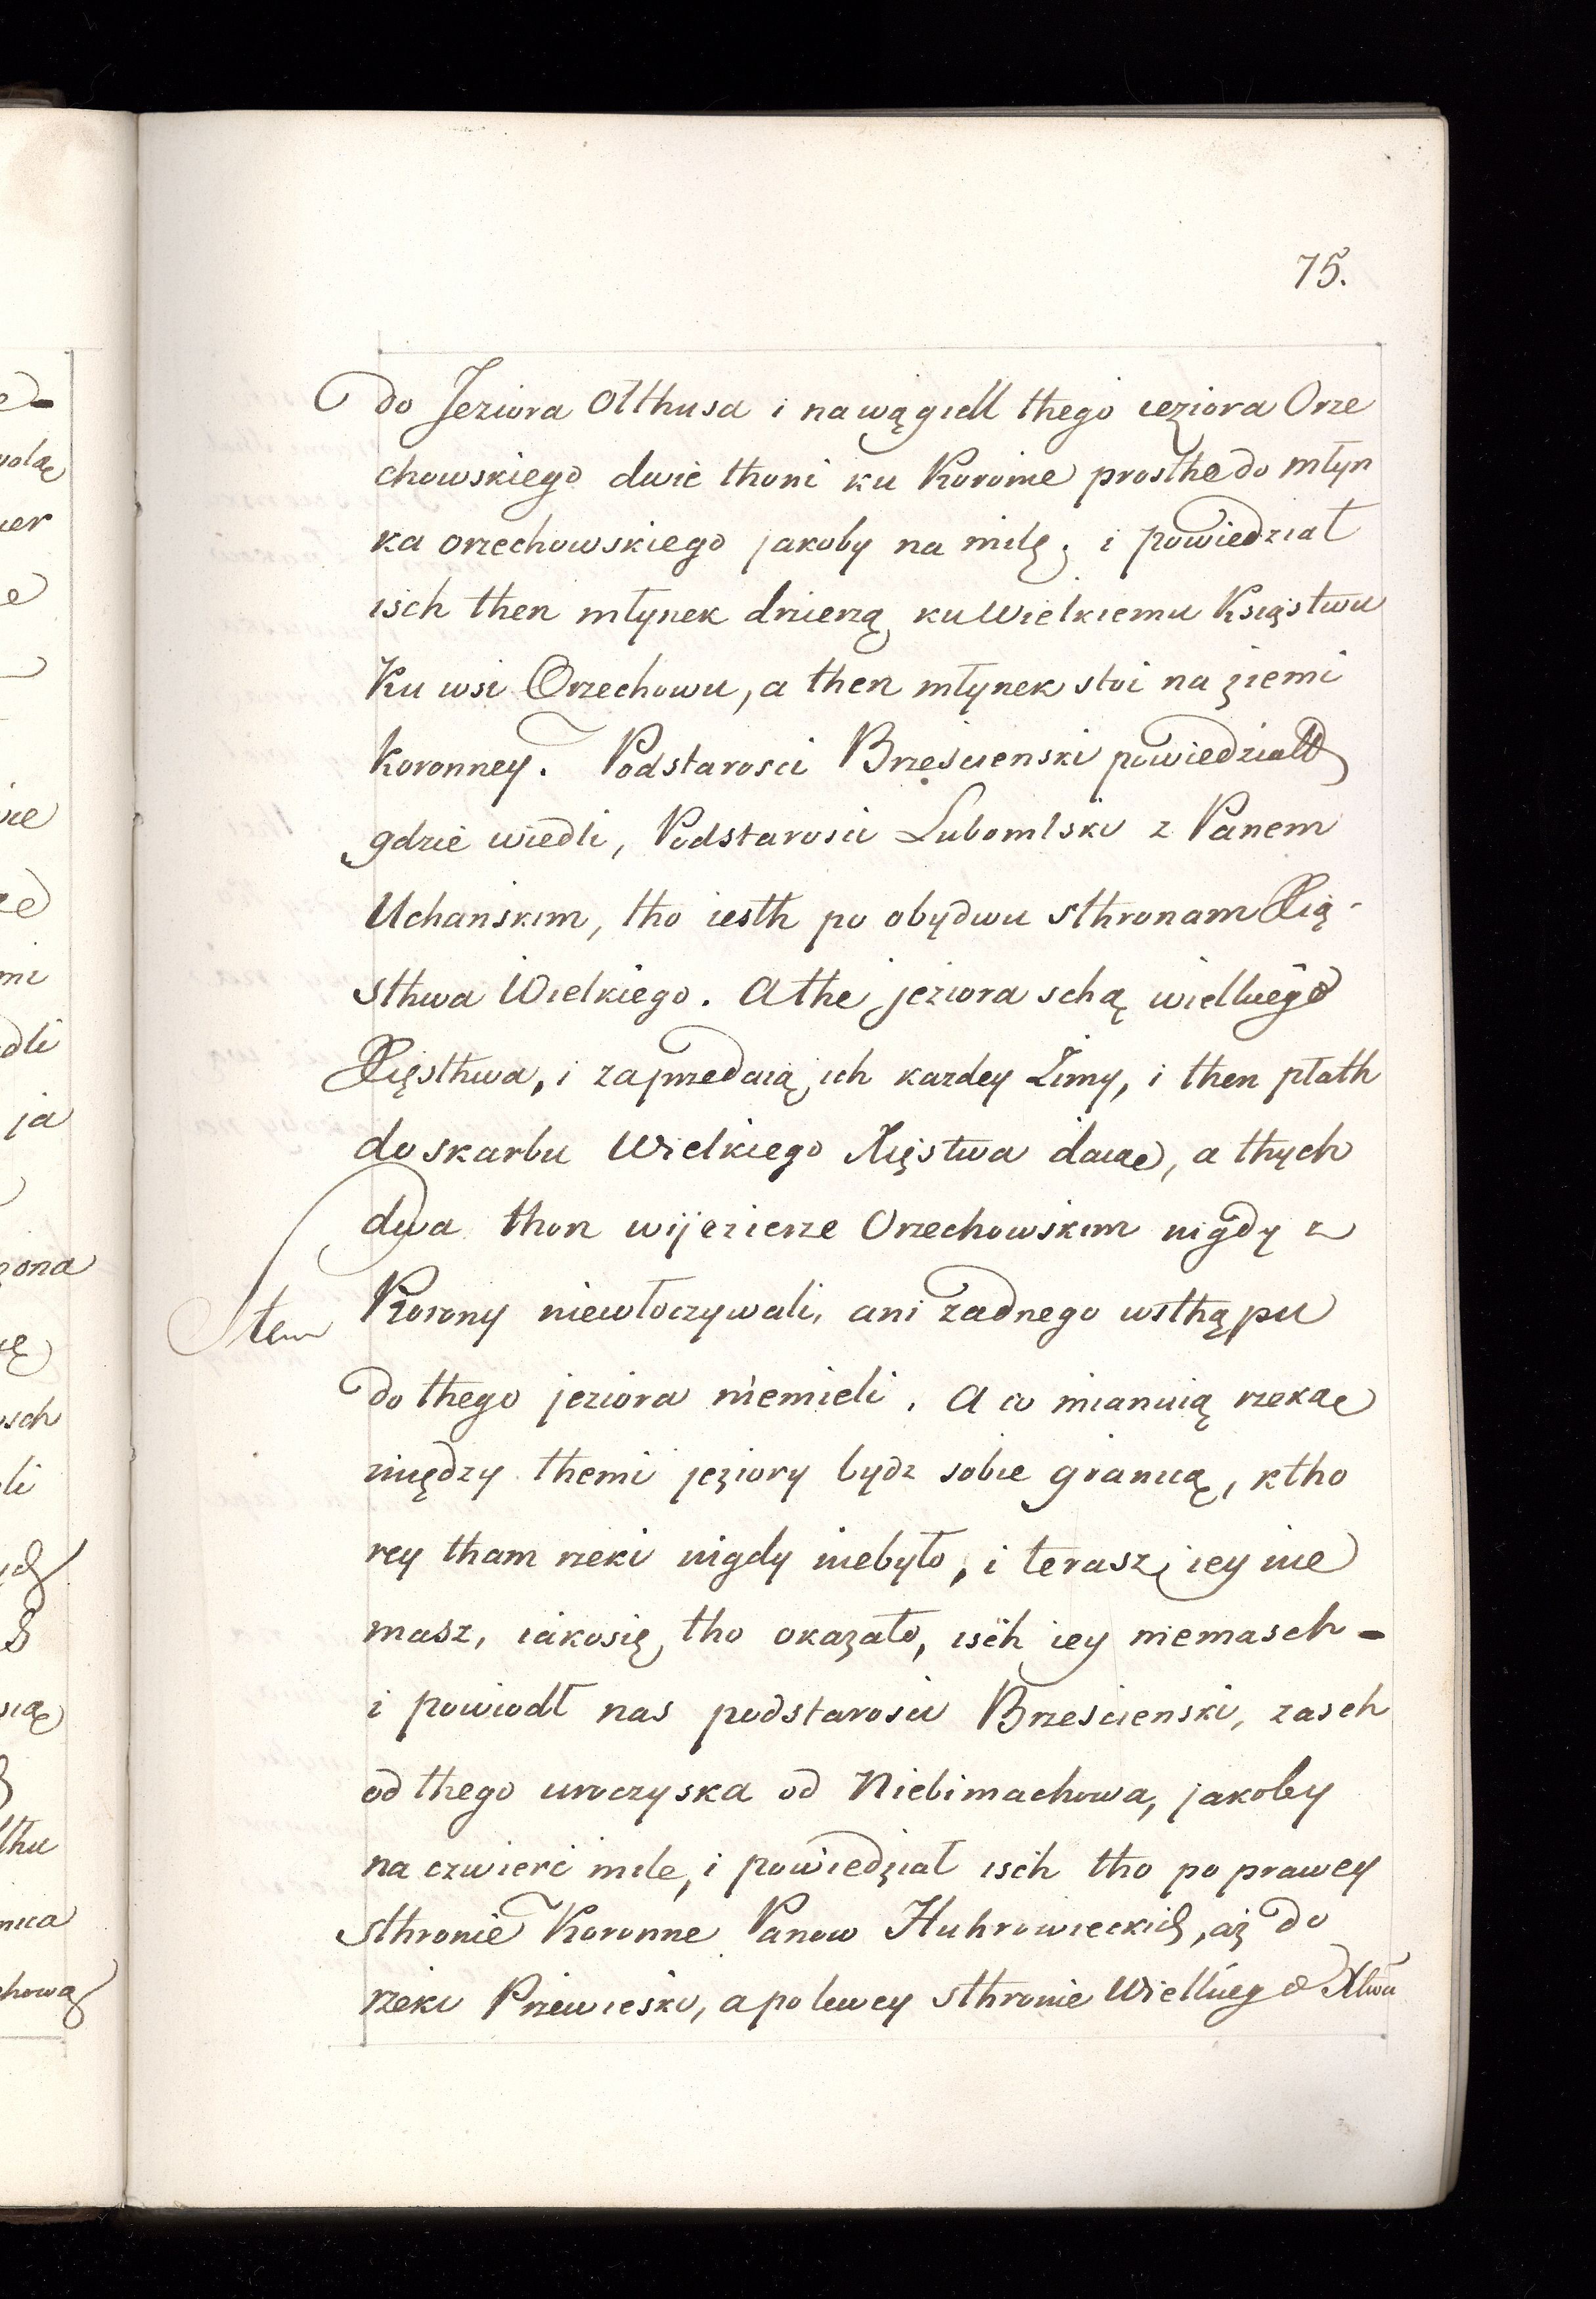 75.
do Jeziora Olthusa i na wągiell thego ieziora Orze
chowskiego dwie thoni ku Koronie prosthe do młyn
ka orzechowskiego jakoby na milę; i powiedział
isch then młynek drzierzą ku Wielkiemu Księstwu
Ku wsi Orzechowu, a then młynek stoi na ziemi
Koronney. Podstarosci Brzescienski powiedziall
gdzie wiedli, Podstarosci Lubomlski z Panem
Uchanskim, tho iesth po obydwu sthronam Xię-
sthwa Wielkiego. A the jeziora schą wielkiego
Xięsthwa, i zaprzedaią ich kazdey Zimy, i then płath
do skarbu Wielkiego Xięstwa daiąc, a thych
dwa thon wijezierze Orzechowskim nigdy z
Item
Korony niewłoczywali, ani żadnego wsthąpu
do thego jeziora niemieli. A co mianuią rzekąc
między themi jeziory bydz sobie granicą, ktho
rey tham rzeki nigdy niebyło, i terasz iey nie
masz, iakosię tho okazało, isch iey niemasch -
i powiodł nas podstarosci Brzescienski, zasch
od thego uroczyska od Niebimachowa, jakoby
na czwierć mile, i powiedział isch tho po prawey
sthronie Koronne Panow Huhrowieckich, aż do
rzeki Przewieski, a po lewey sthronie Wielkiego Xtwa
e-
wolą
ier
e
mi
dli
ja
zona
sch
li
lthu
nica
chowa